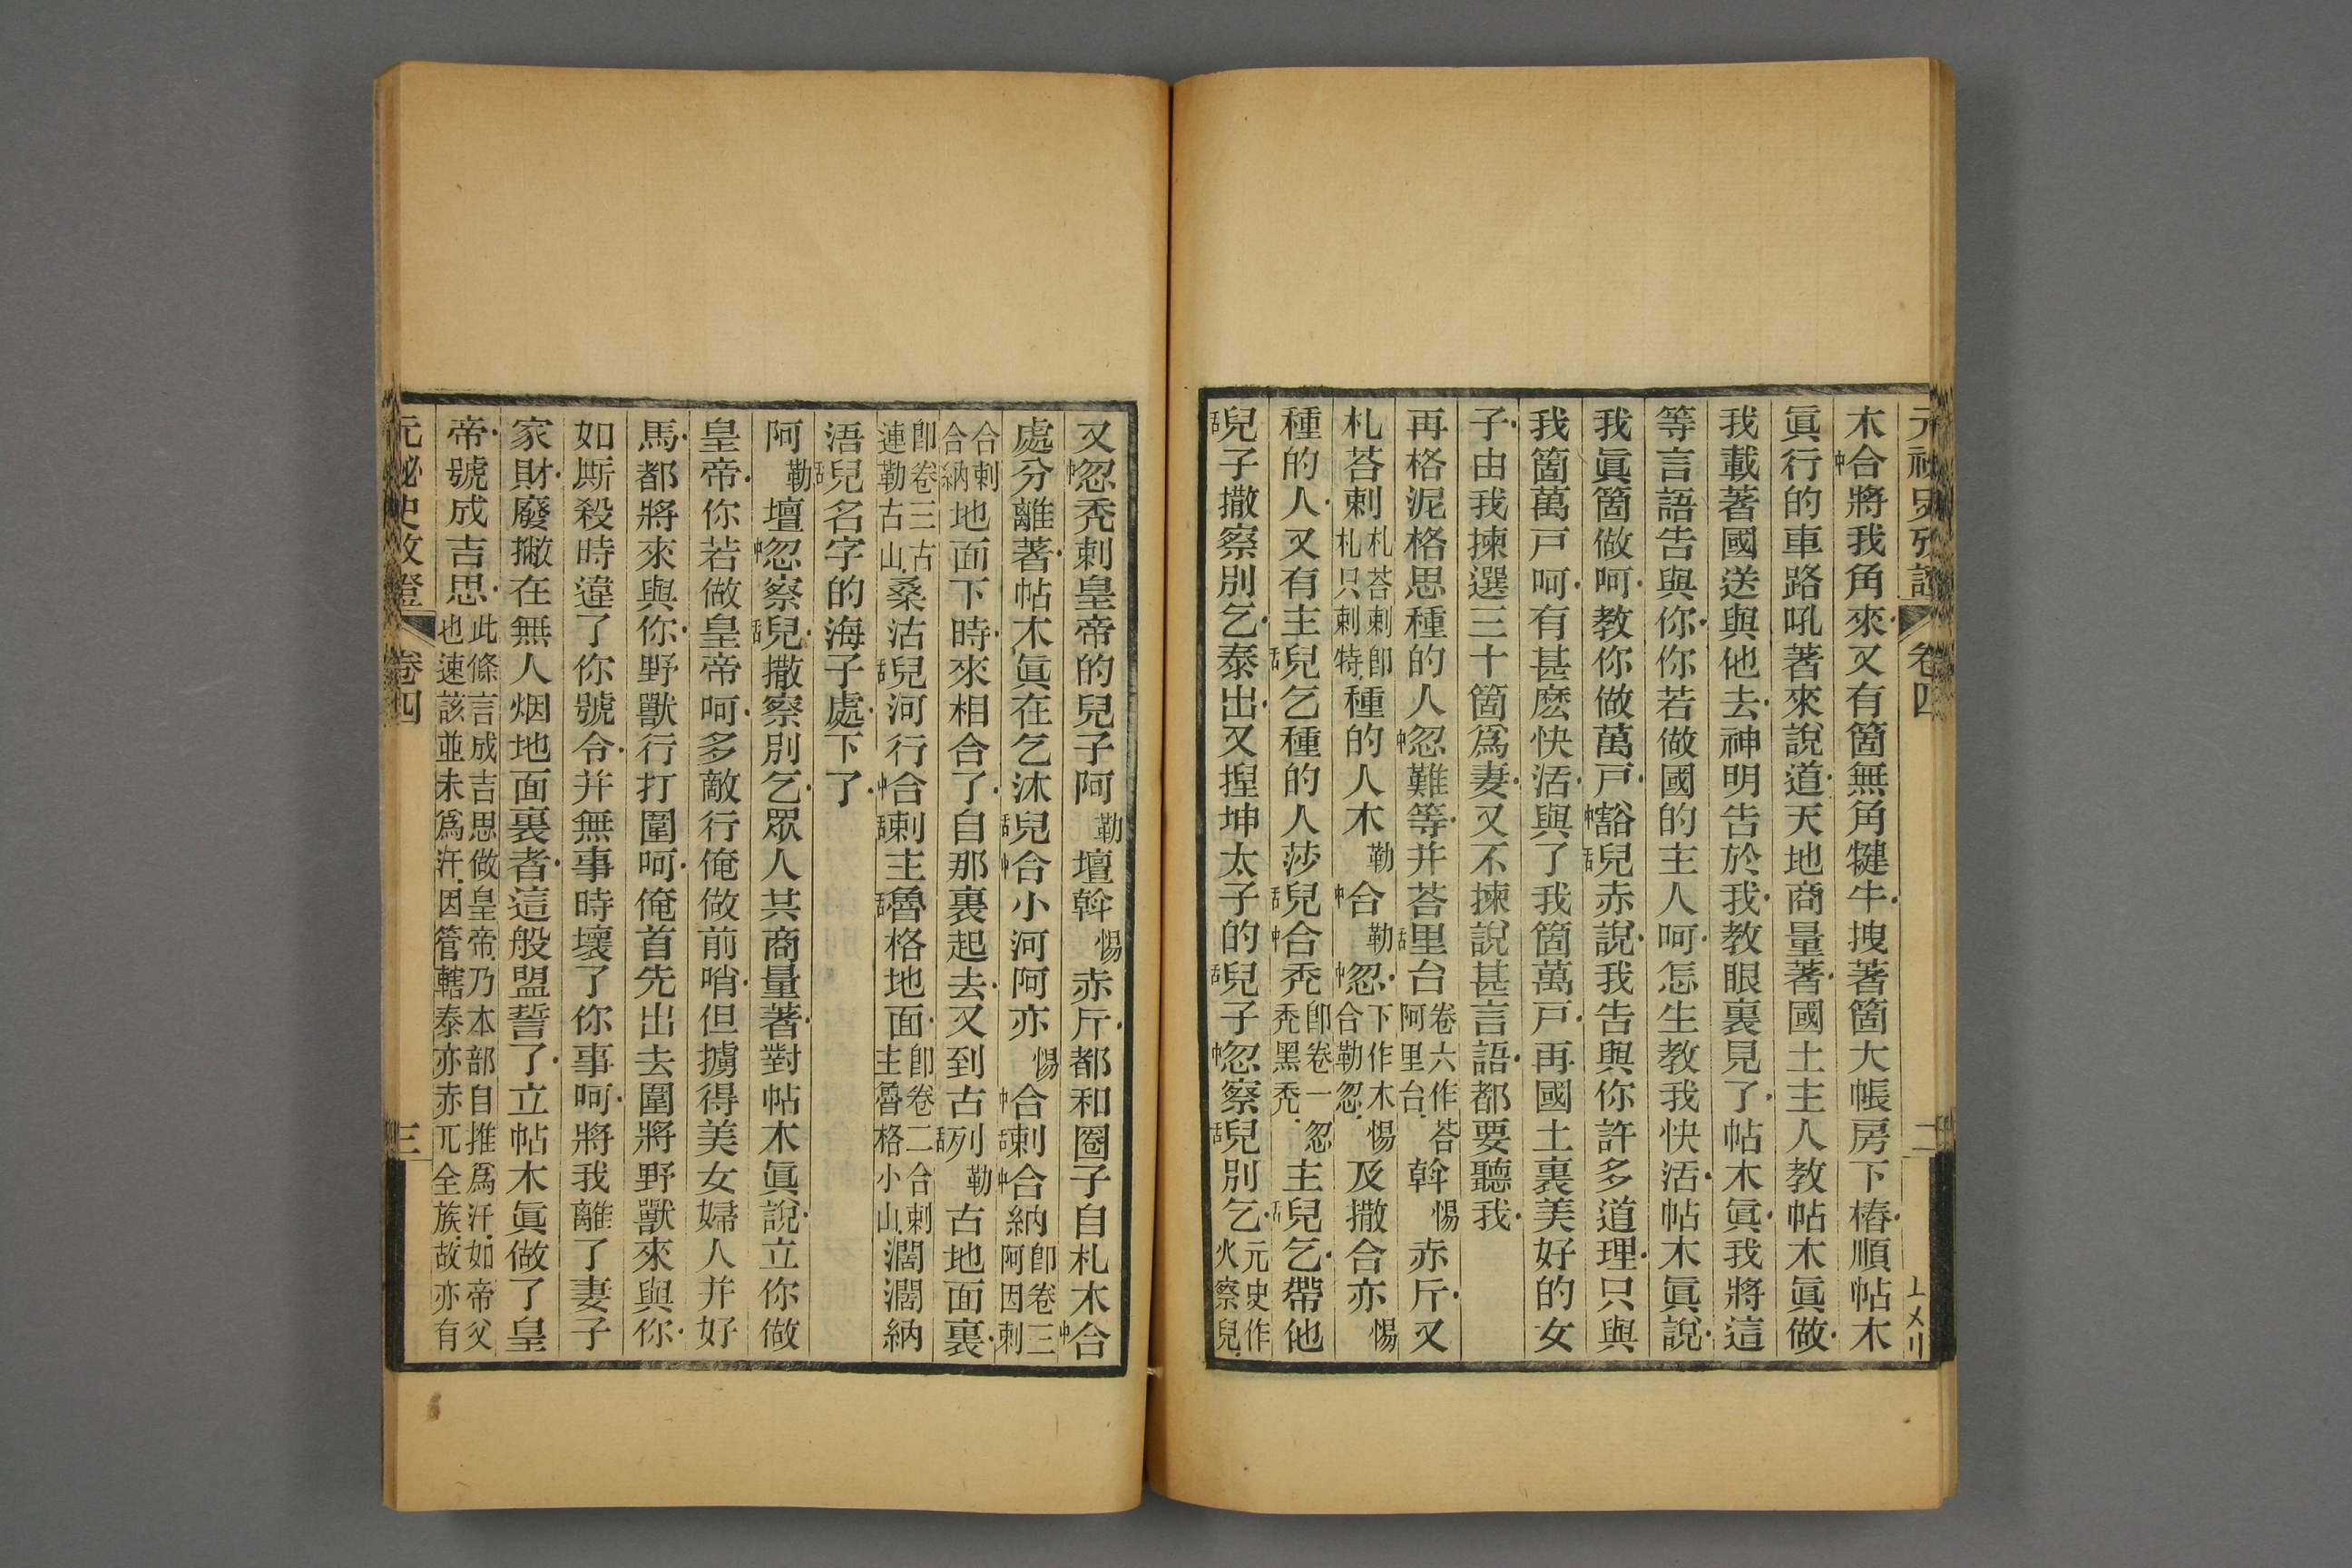 元秘史攷證 卷四 二
木中合將我角來又有箇無角犍牛拽著箇大帳房下樁順帖木
眞行的車路吼著來說道天地商量著國土主人教帖木眞做
我載著國送與他去神明告於我教眼裏見了帖木眞我將這
等言語告與你你若做國的主人呵怎生教我快活帖木眞說
我眞箇做呵教你做萬戶中豁舌兒赤說我告與你許多道理只與
我箇萬戶呵有甚麽快活與了我箇萬戶再國土裏美好的女
子由我揀選三十箇爲妻又不揀說甚言語都要聽我
再格泥格思種的人中忽難等并荅舌里台卷六作荅阿里台斡惕赤斤又
札荅剌札荅剌卽札只剌特種的人木勒中合勒中忽下作木惕合勒忽及撒合亦惕
種的人又有主舌兒乞種的人莎舌兒中合禿卽卷一忽禿黑禿主舌兒乞帶他
舌兒子撒察別乞泰出又揑坤太子的舌兒子中忽察舌兒別乞元史作火察兒
又中忽禿剌皇帝的兒子阿勒壇斡惕赤斤都和圈子自札木中合
處分離著帖木眞在乞沐舌兒中合小河阿亦惕中合舌剌中合納卽卷三阿因剌
合剌合納地面下時來相合了自那裏起去又到古舌列勒古地面裏
卽卷三古連勒古山桑沽舌兒河行中合舌剌主舌魯格地面卽卷二合剌主魯格小山濶濶納
浯舌兒名字的海子處下了
阿勒壇中忽察舌兒撒察別乞眾人共商量著對帖木眞說立你做
皇帝你若做皇帝呵多敵行俺做前哨但擄得美女婦人并好
馬都將來與你野獸行打圍呵俺首先出去圍將野獸來與你
如厮殺時違了你號令并無事時壞了你事呵將我離了妻子
家財廢撇在無人烟地面裏者這般盟誓了立帖木眞做了皇
帝號成吉思此條言成吉思做皇帝乃本部自推爲汗如帝父也速該並未爲汗因管轄泰亦赤兀全族故亦有
元秘史攷證 卷四 三